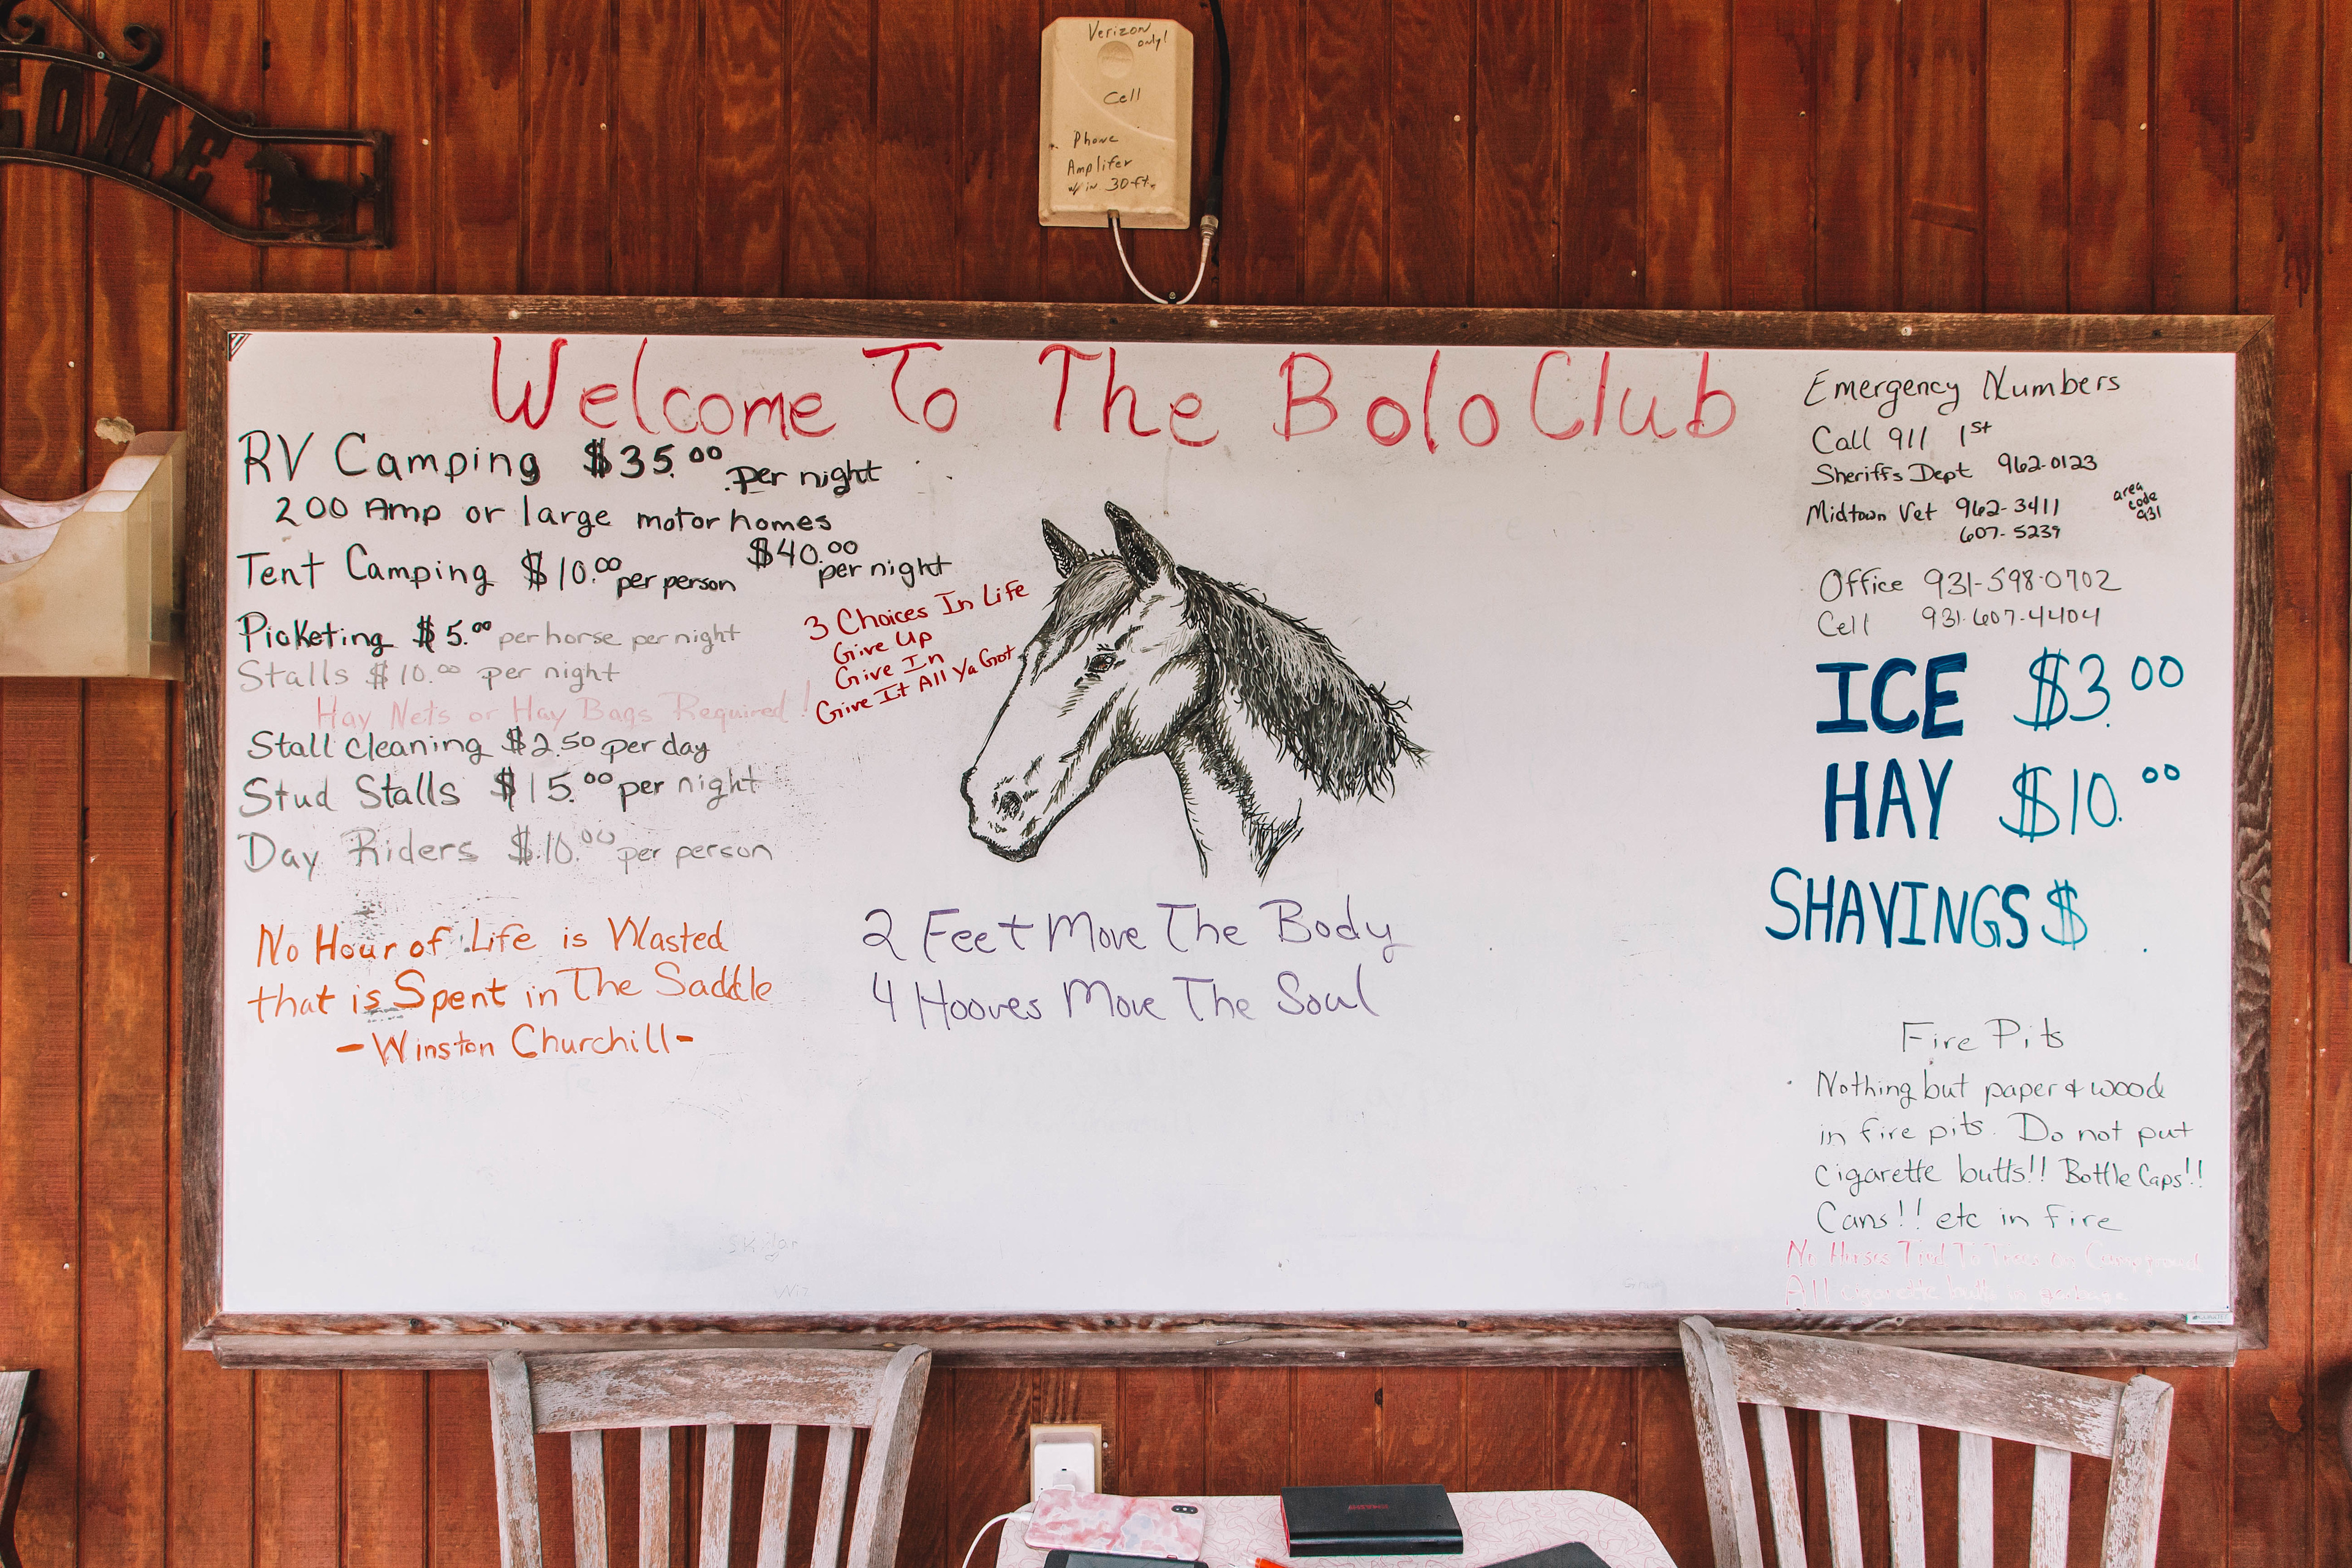 COME
Verizon
only!
Cell
Phone
Amplifer
w/in 30ft.
Welcome To The Bolo Club
RV Camping $35.00 per night
200 Amp or large motorhomes
$40.00 per night
Tent Camping $10.00 per person
Picketing $5.00 per horse per night
Stalls $10.00 per night
Hay Nets or Hay Bags Required!
Stall cleaning $2.50 per day
Stud Stalls $15.00 per night
Day Riders $10.00 per person
No Hour of Life is Wasted
that is Spent in The Saddle
-Winston Churchill-
3 Choices In Life
Give Up
Give In
Give It All Ya Got
2 Feet Move The Body
4 Hooves Move The Soul
Emergency Numbers
Call 911 1st
Sheriffs Dept 962-0123
Midtown Vet 962-3411
607-5239
area
code
931
Office 931-598-0702
Cell 931-607-4404
ICE $3.00
HAY $10.00
SHAVINGS $ .
Fire Pits
Nothing but paper & wood
in fire pits. Do not put
cigarette butts!! Bottle Caps!!
Cans!! etc in fire
No Horses Tied To Trees in Campground
All cigarette butts in garbage